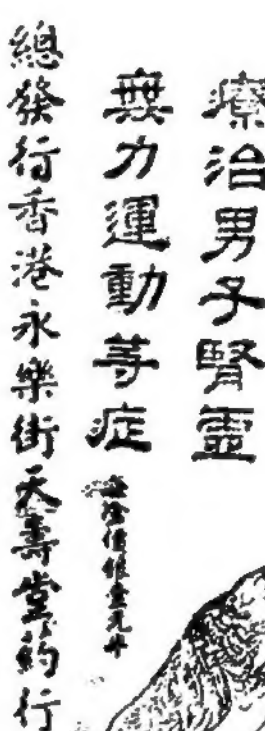 療治男子腎靈
無力運動等症
總發行香港永樂街天壽堂葯行